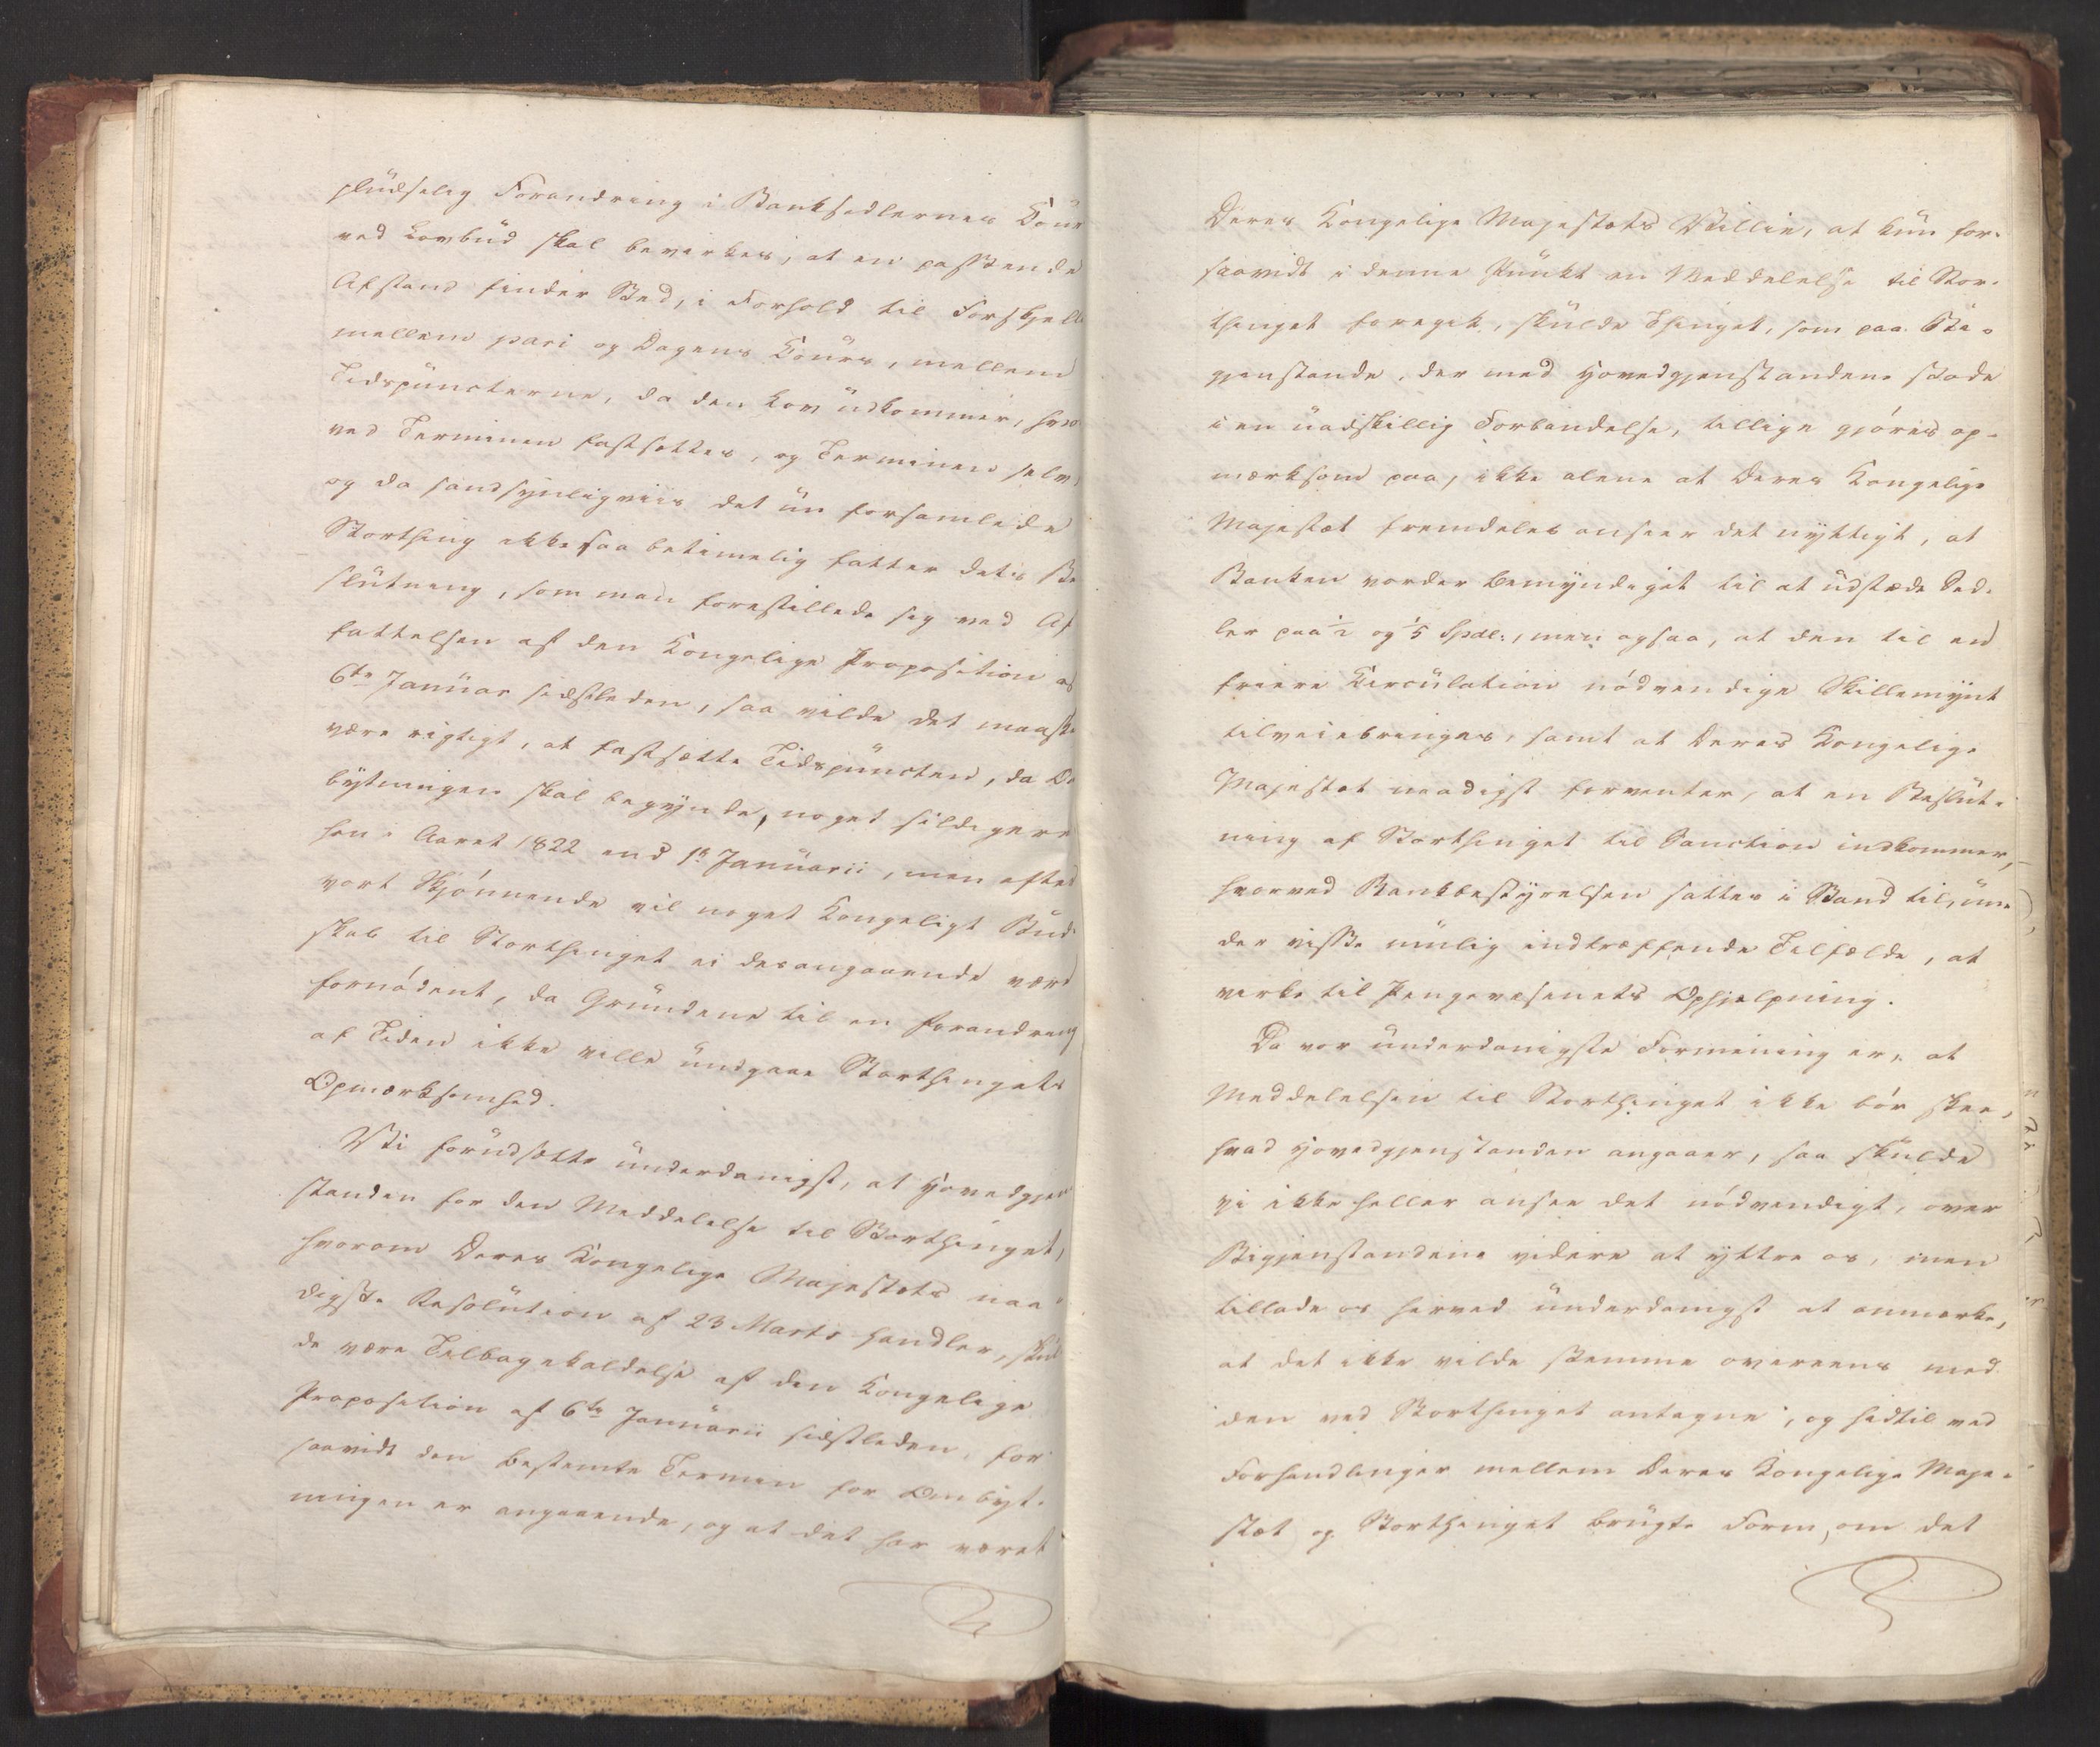 pludselig Forandring i Banksedlernes Cour
ved Lovbud skal bevirkes, at en passende
Afstand finder Sted, i Forhold til Forskjell
mellem pari og Dagens Cours, mellem
Tidspuncterne, da den Lov udkommer, hvor
ved Terminen fastsettes, og Terminen selv,
og da sandsynligviis det nu forsamlede
Storthing ikke saa betimelig fatter dets Be
slutning, som man forestillede sig ved Af
fattelsen af den Kongelige Proposition af
6te Januar sidstleden, saa vilde det maaske
være rigtigt, at fastsætte Tidspuncten, da Om
bytningen skal begynde, noget sildigere
hen i Aaret 1822 end 1ste Januarii, men efter
vort Skjønnende vil noget Kongeligt Bud-
skab til Storthinget ei desangaaende være
fornødent, da Grundene til en Forandring
af Tiden ikke ville undgaae Storthingets
Opmærksomhed.
Vi forudsætte underdanigst, at Hovedgjen
standen for den Meddelelse til Storthinget,
hvorom Deres Kongelige Majestets naa-
digste Resolution af 23 Marts handler, skul
de være Tilbagekaldelse af den Kongelige
Proposition af 6te Januarii sidstleden, for
saavidt den bestemte Termin for Ombyt-
ningen er angaaende, og at det har været
Deres Kongelige Majestets Villie, at kun for-
saavidt i denne Punkt en Meddelelse til Stor-
thinget foregik, skulde Thinget, som paa Bi-
gjenstande, der med Hovedgjenstanden stode
i en uadskillig Forbindelse, tillige gjøres op-
mærksom paa, ikke alene at Deres Kongelige
Majestæt fremdeles ansaae det nyttigt, at
Banken vorder bemyndiget til at udstæde Sed-
ler paa 1/2 og 1/5 Spdl:, men ogsaa, at den til en
friere Circulation nødvendige Skillemynt
tilveiebringes, samt at Deres Kongelige
Majestet naadigst forventer, at en Beslut-
ning af Storthinget til Sanction indkommer,
hvorved Bankbestyrelsen sættes i Stand til, un-
der visse mulig indtræffende Tilfælde, at
virke til Pengevæsenets Ophjelpning.
Da vor underdanigste Formening er, at
Meddelelsen til Storthinget ikke bør skee,
hvad Hovedgjenstanden angaaer, saa skulde
vi ikke heller ansee det nødvendigt, over
Bigjenstandene videre at yttre os, men
tillade os herved underdanigst at anmærke,
at det ikke vilde stemme overeens med
den ved Storthinget antagne, og hidtil ved
Forhandlinger mellem Deres Kongelige Maje-
stæt og Storthinget brugte Form, om det